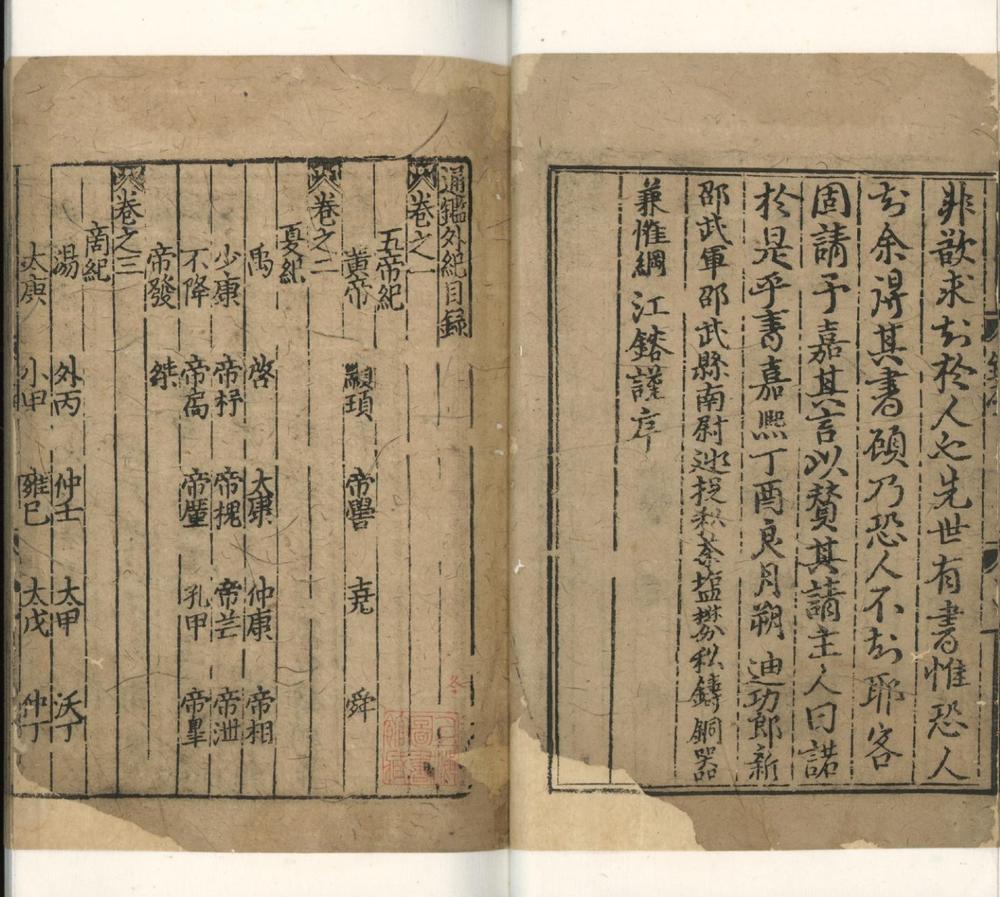 非欲求知於人也先世有書惟恐人
知余得其書顧乃恐人不知耶客
固請予嘉其言以贊其請主人曰諾
於是乎書嘉熙丁酉良月朔迪功郎新
邵武軍邵武縣南尉巡捉私茶塩礬私鑄銅器
兼催綱江鎔謹序
通鑑外紀目録
卷之一
五帝紀
黄帝 顓頊 帝嚳 堯 舜
卷之二
夏紀
禹 啓 太康 仲康 帝相
少康 帝杼 帝槐 帝芒 帝泄
不降 帝扃 帝廑 孔甲 帝臯
帝發 桀
卷之三
商紀
湯 外丙 仲壬 太甲 沃丁
太庚 小甲 雍己 太戊 仲丁